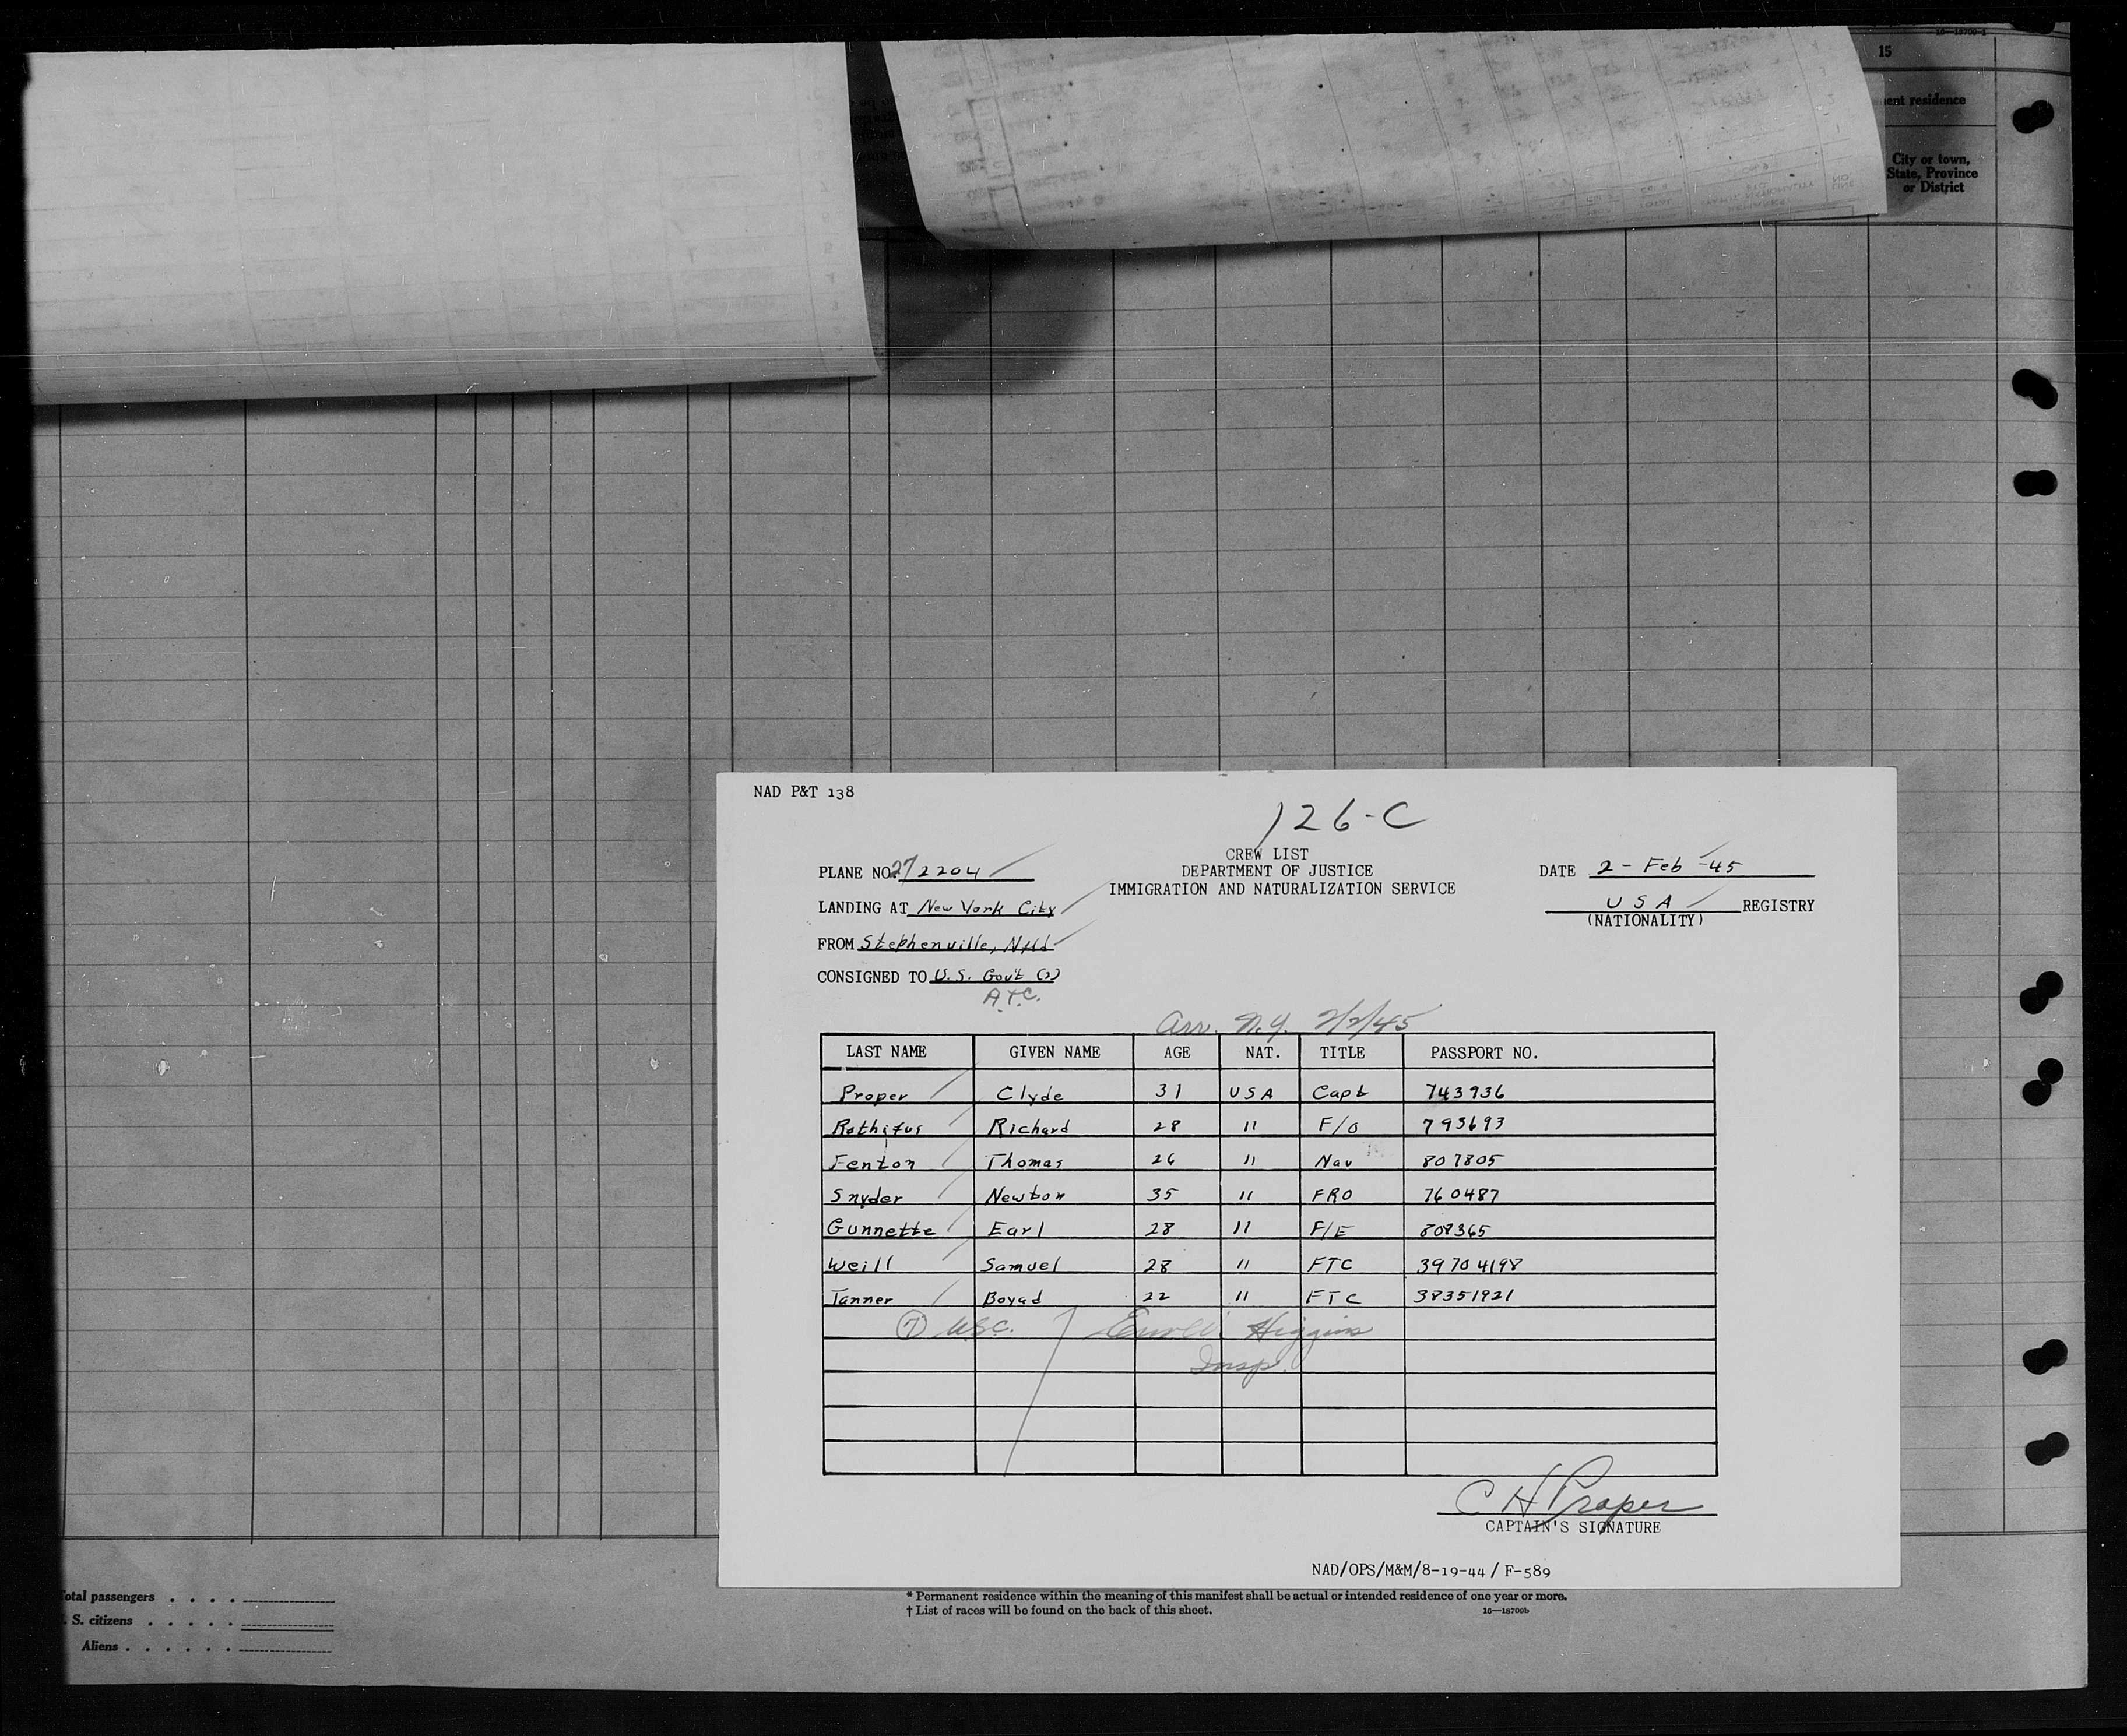 16—18700-1
15
ent residence
City or town,
State, Province
or District
NAD P&T 138
126-C
CREW LIST
DEPARTMENT OF JUSTICE
IMMIGRATION AND NATURALIZATION SERVICE
PLANE NO. 272204
DATE 2 - Feb -45
LANDING AT New York City
USA REGISTRY
(NATIONALITY)
FROM Stephenville, Nfld
CONSIGNED TO U.S. Gov't
A.T.C.
Arr. N.Y. 2/2/45
LAST NAME GIVEN NAME AGE NAT. TITLE PASSPORT NO.
Proper Clyde 31 USA Capt 743936
Rothifus Richard 28 " F/O 793693
Fenton Thomas 26 " Nav 807805
Snyder Newton 35 " FRO 760487
Gunnette Earl 28 " F/E 808365
Weill Samuel 28 " FTC 39704198
Tanner Boyad 22 " FTC 38351921
7 USC. Higgins
Insp.
C H Proper
CAPTAIN'S SIGNATURE
NAD/OPS/M&M/8-19-44/F-589
Total passengers
S. citizens
Aliens
* Permanent residence within the meaning of this manifest shall be actual or intended residence of one year or more.
† List of races will be found on the back of this sheet.
16—18700b